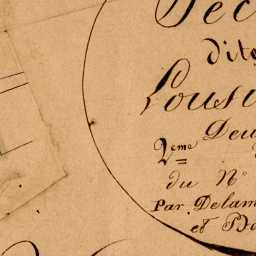 Sec
dite
Lous
Deu
2eme
du N°
Par Delam
et Do